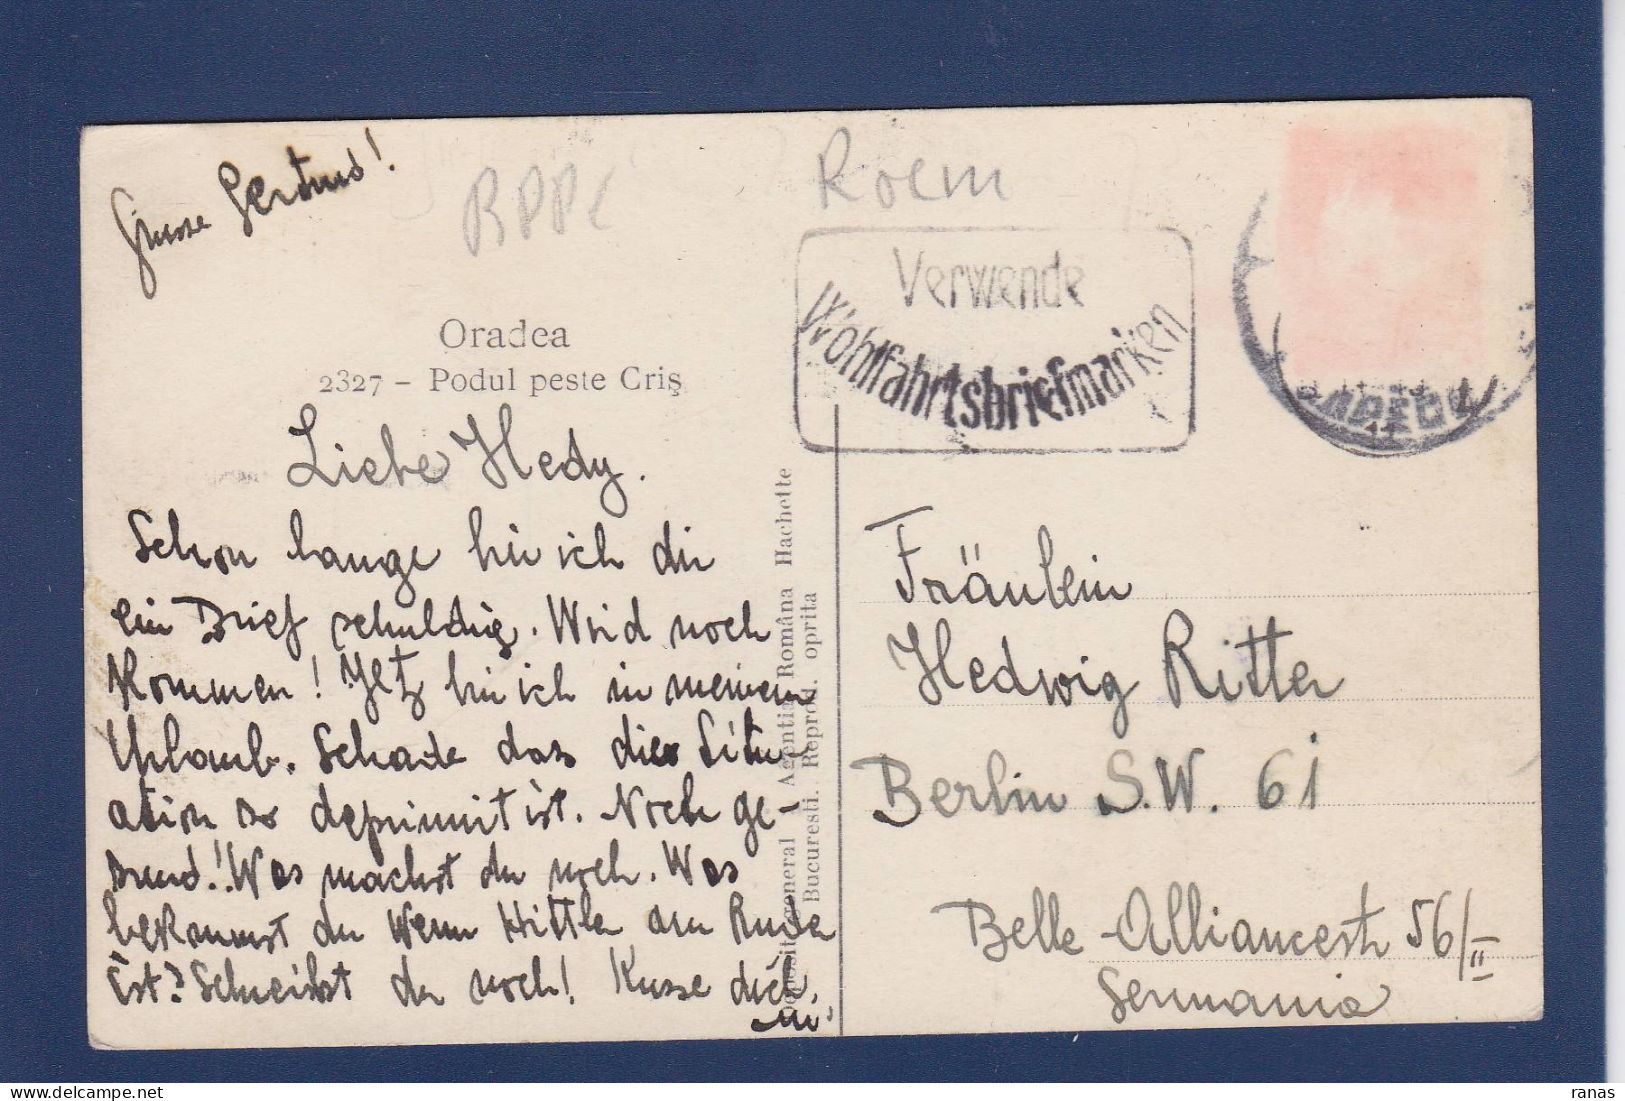 Grüsse Gertrud!
RPPC
Roem
Verwende
Wohlfahrtsbriefmarken
Oradea
2327 – Podul peste Criș
Liebe Hedy.
Schon lange bin ich dir
ein Brief schuldig. Wird noch
Kommen! Jetz bin ich in meinem
Urlaub. Schade das die Situ
ation so deprimit ist. Noch ge-
sund!! Was machst du noch. Was
bekommst du wenn Hittler am Ruder
ist? Schreibst du noch! Kusse dich.
Depositul general – Agentia Româna Hachette
Bucuresti. Reprod. oprita
Fräulein
Hedwig Ritter
Berlin S.W. 61
Belle-Alliancestr 56/II
Germania
ranas